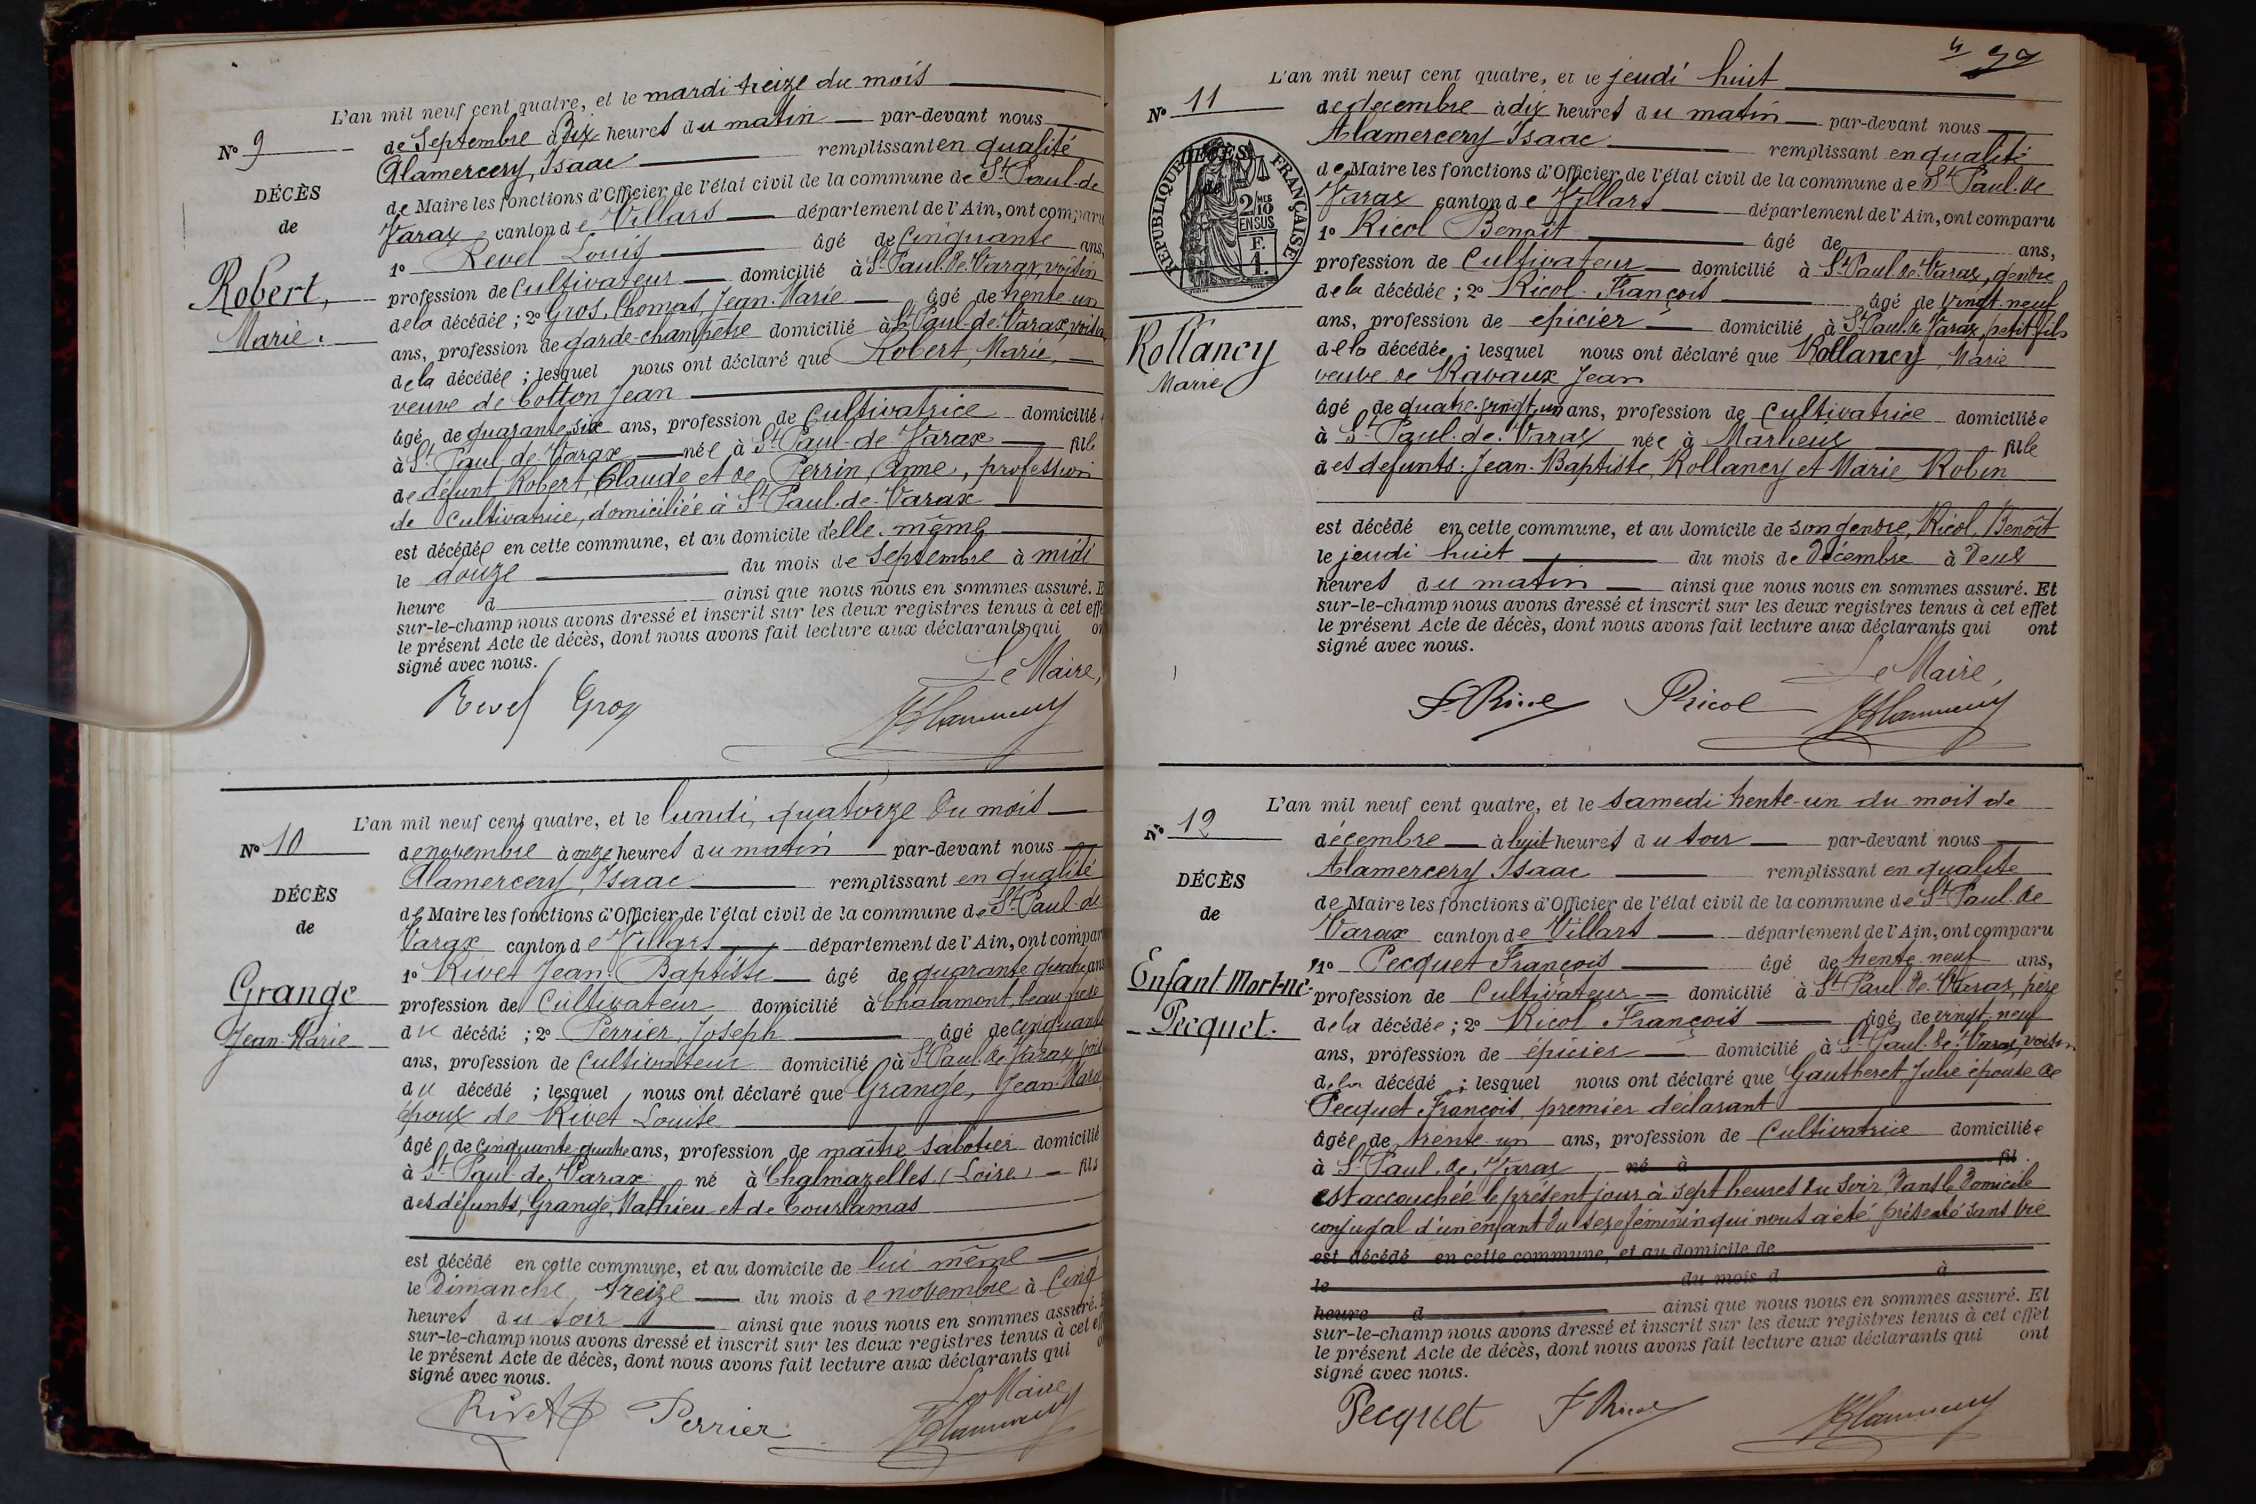 L'an mil neuf cent quatre, et le mardi treize du mois
N° 9
de Septembre à Dix heures du matin par-devant nous
Alamercery, Isaac remplissant en qualité
DÉCÈS
de Maire les fonctions d'Officier de l'état civil de la commune de St Paul-de
de
Varax canton de Villars département de l'Ain, ont comparu
1° Revel Louis âgé de Cinquante ans,
Robert,
profession de Cultivateur domicilié à St Paul-de-Varax, voisin
de la décédée ; 2° Gros, Thomas, Jean-Marie âgé de trente-un
Marie.
ans, profession de garde-champêtre domicilié à St Paul-de-Varax, voisin
de la décédée ; lesquel nous ont déclaré que Robert, Marie,
veuve de Cotton Jean
âgé de quarante-six ans, profession de Cultivatrice domicilié
à St Paul-de-Varax née à St Paul-de-Varax fille
de défunt Robert, Claude et de Perrin, Anne, profession
de Cultivatrice, domiciliée à St Paul-de-Varax
est décédée en cette commune, et au domicile d'elle-même
le douze du mois de Septembre à midi
heure d ainsi que nous nous en sommes assuré. E
sur-le-champ nous avons dressé et inscrit sur les deux registres tenus à cet effe
le présent Acte de décès, dont nous avons fait lecture aux déclarants qui on
signé avec nous.
Le Maire,
Revel Gros
L'an mil neuf cent quatre, et le lundi, quatorze du mois
N° 10
de novembre à onze heures du matin par-devant nous
Alamercery, Isaac remplissant en qualité
DÉCÈS
de Maire les fonctions d'Officier de l'état civil de la commune de St Paul-de
de
Varax canton de Villars département de l'Ain, ont compar
1° Rivet Jean-Baptiste âgé de quarante-quatre ans
Grange
profession de Cultivateur domicilié à Chalamont, beau-frère
Jean-Marie
du décédé ; 2° Perrier, Joseph âgé de cinquante
ans, profession de Cultivateur domicilié à St Paul-de-Varax, voisi
du décédé ; lesquel nous ont déclaré que Grange, Jean-Marie
époux de Rivet Louise
âgé de Cinquante-quatre ans, profession de maître sabotier domicilié
à St Paul-de-Varax né à Chalmazelles (Loire) fils
des défunts, Grange, Mathieu et de Courtamas
est décédé en cette commune, et au domicile de lui-même
le Dimanche, treize du mois de novembre à Cinq
heures du soir ainsi que nous nous en sommes assuré. E
sur-le-champ nous avons dressé et inscrit sur les deux registres tenus à cet ef
le présent Acte de décès, dont nous avons fait lecture aux déclarants qui o
signé avec nous.
Le Maire
Rivet Perrier
L'an mil neuf cent quatre, et le jeudi huit
N° 11
de decembre à dix heures du matin par-devant nous
Alamercery Isaac remplissant en qualité
DÉCÈS
RÉPUBLIQUE FRANÇAISE
2/10 MES EN SUS
F. 1.
de Maire les fonctions d'Officier de l'état civil de la commune de St Paul-de
de
Varax canton de Villars département de l'Ain, ont comparu
1° Ricol Benoît âgé de ans,
profession de Cultivateur domicilié à St Paul-de-Varax, gendre
de la décédée ; 2° Ricol François âgé de vingt-neuf
ans, profession de epicier domicilié à St Paul-de Varax, petit-fils
Rollancy
Marie
de la décédée ; lesquel nous ont déclaré que Rollancy, Marie
veuve de Ravaux Jean
âgé de quatre-vingt-un ans, profession de Cultivatrice domiciliée
à St Paul-de-Varax née à Marlieux fille
des defunts Jean-Baptiste, Rollancy et Marie Robin
est décédé en cette commune, et au domicile de son gendre, Ricol, Benoît
le jeudi huit du mois de Décembre à Deux
heures du matin ainsi que nous nous en sommes assuré. Et
sur-le-champ nous avons dressé et inscrit sur les deux registres tenus à cet effet
le présent Acte de décès, dont nous avons fait lecture aux déclarants qui ont
signé avec nous.
Le Maire,
F. Ricol Ricol
L'an mil neuf cent quatre, et le samedi trente-un du mois de
N° 12
décembre à huit heures du soir par-devant nous
Alamercery Isaac remplissant en qualité
DÉCÈS
de Maire les fonctions d'Officier de l'état civil de la commune de St Paul-de
de
Varax canton de Villars département de l'Ain, ont comparu
1° Pecquet François âgé de trente-neuf ans,
Enfant Mort-né
profession de Cultivateur domicilié à St Paul-de-Varax, père
Pecquet.
de la décédée ; 2° Ricol François âgé de vingt-neuf
ans, profession de épicier domicilié à St Paul-de-Varax, voisin
de la décédé ; lesquel nous ont déclaré que Gautheret, Julie épouse de
Pecquet François, premier déclarant
âgée de trente-un ans, profession de Cultivatrice domiciliée
à St Paul-de-Varax né à fil
est accouchée le présent jour à sept heures du soir, dans le Domicile
conjugal d'un enfant du sexe féminin qui nous a été présenté sans vie
est décédé en cette commune, et au domicile de
le du mois d à
heure d ainsi que nous nous en sommes assuré. Et
sur-le-champ nous avons dressé et inscrit sur les deux registres tenus à cet effet
le présent Acte de décès, dont nous avons fait lecture aux déclarants qui ont
signé avec nous.
Pecquet F Ricol